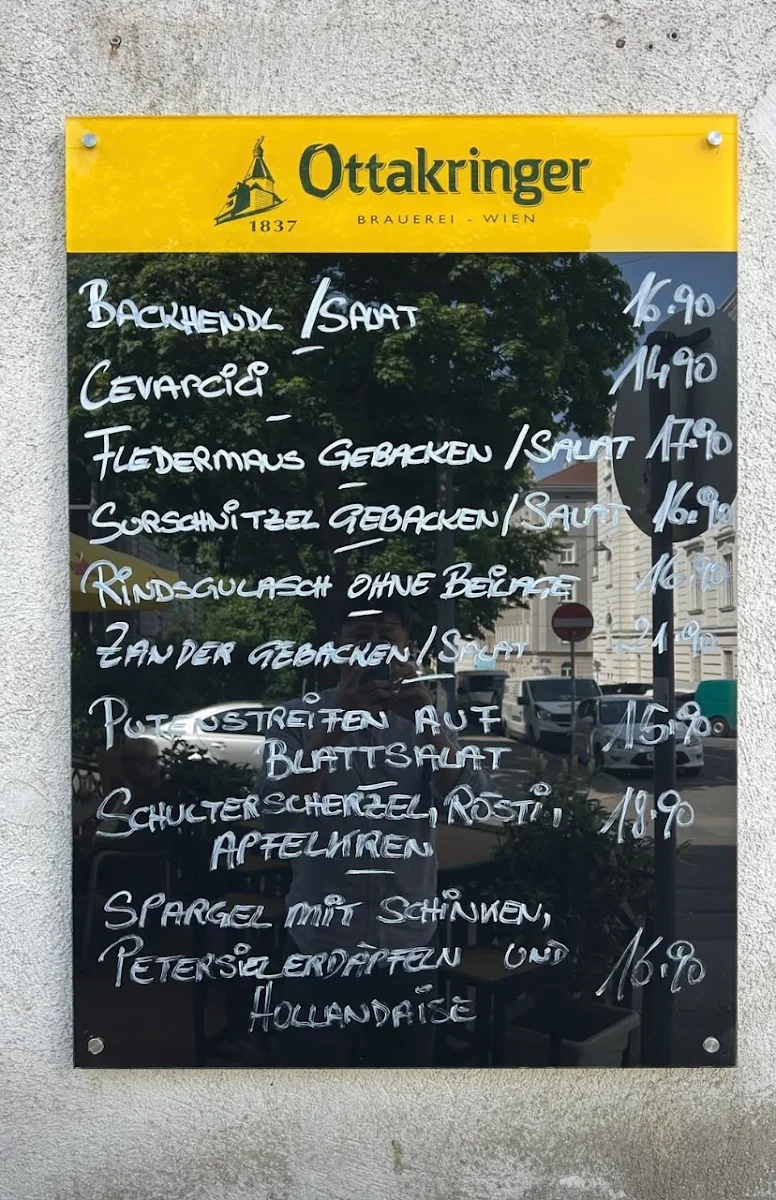 Ottakringer
1837
BRAUEREI - WIEN
BACKHENDL /SALAT 16.90
CEVAPCICI 14.90
FLEDERMAUS GEBACKEN /SALAT 17.90
SURSCHNITZEL GEBACKEN/SALAT 16.90
RINDSGULASCH OHNE BEILAGE 16.90
ZANDER GEBACKEN/SALAT 21.90
PUTENSTREIFEN AUF 15.90
BLATTSALAT
SCHULTERSCHERZEL, RÖSTI, 18.90
APFELKREN
SPARGEL MIT SCHINKEN,
PETERSIELERDÄPFELN UND 16.90
HOLLANDAISE